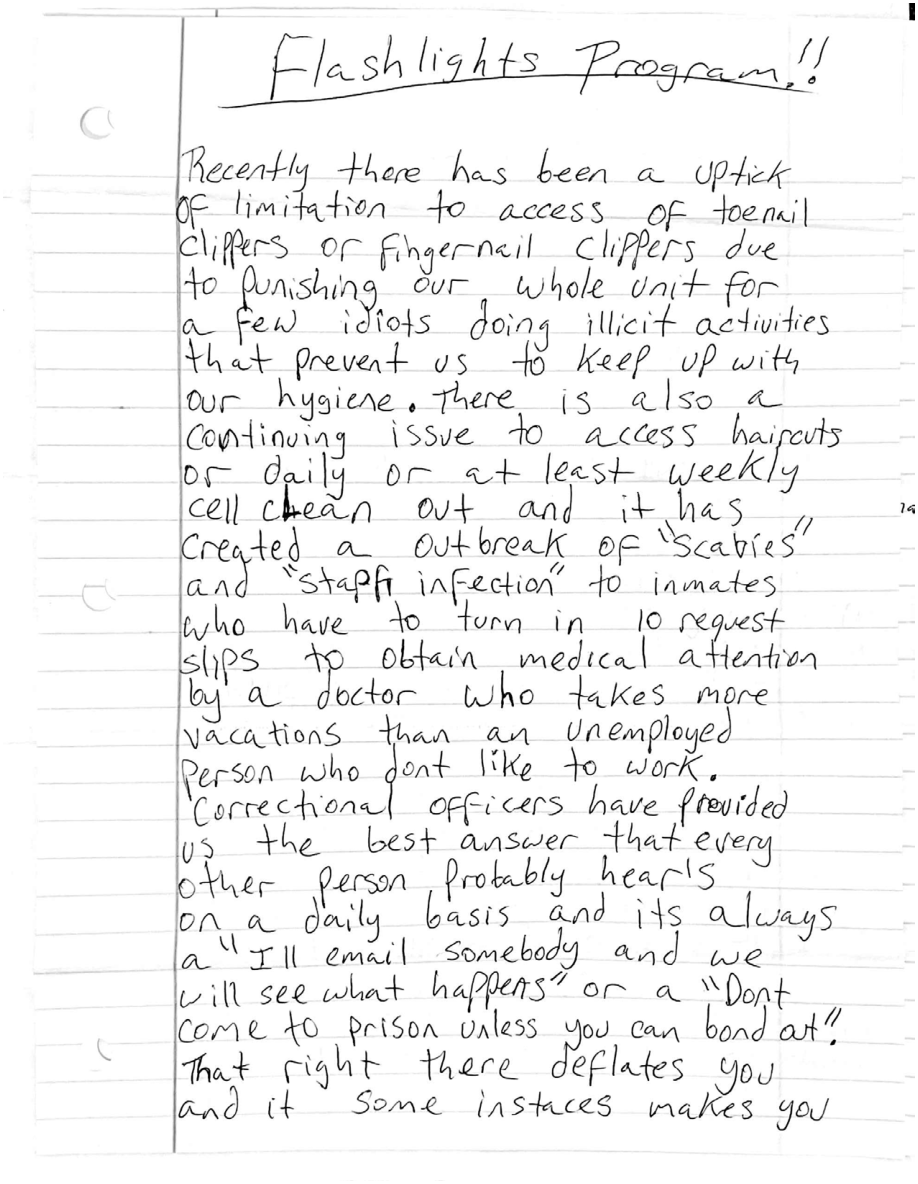 Flashlights Program!!
Recently there has been a uptick
of limitation to access of toenail
clippers or fingernail clippers due
to punishing our whole unit for
a few idiots doing illicit activities
that prevent us to keep up with
our hygiene. There is also a
continuing issue to access haircuts
or daily or at least weekly
cell clean out and it has
created a outbreak of "Scabies"
and "staph infection" to inmates
who have to turn in 10 request
slips to obtain medical attention
by a doctor who takes more
vacations than an unemployed
person who dont like to work.
Correctional officers have provided
us the best answer that every
other person probably hear's
on a daily basis and its always
a "I'll email somebody and we
will see what happens" or a "Dont
come to prison unless you can bond out".
That right there deflates you
and it some instaces makes you